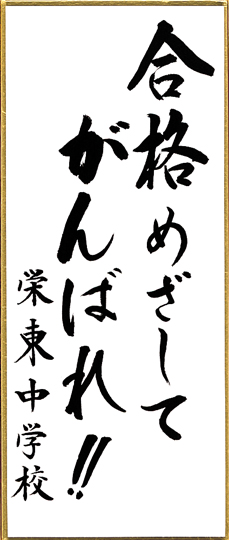 合格めざして
がんばれ!!
栄東中学校